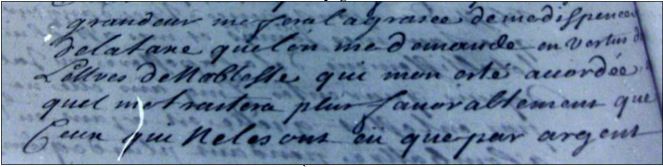 grandeur me fera la grasce de me dispencer
De la taxe quel'on me demande en vertus d
Lettres de Noblesse qui mon esté acordée
quel me traitera plus favorablement que
Ceux qui Neles ont eü que par argent